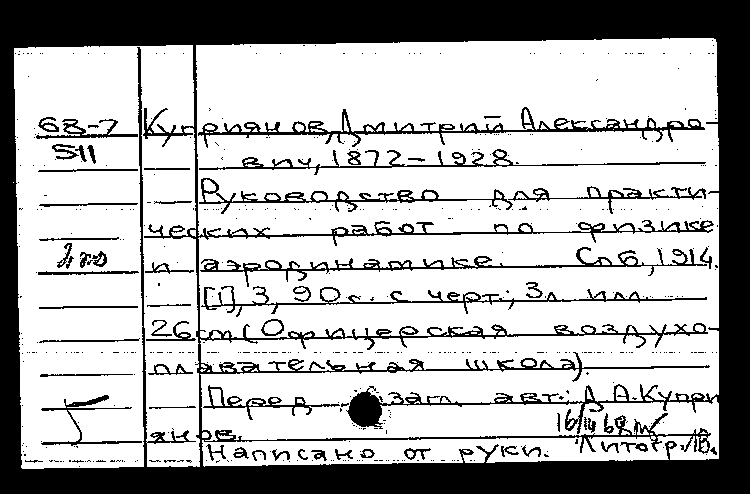 68-7 Куприянов, Дмитрий Александро-
511 вич, 1872-1928.
Руководство для практи-
ческих работ по физике
и аэродинамике. Спб., 1914.
[1], 3, 90 с. с черт.; 3 л. илл.
26 cm (Офицерская воздухо-
плавательная школа).
Перед загл. авт.: Д.А. Купри
янов.
Написано от руки. Литогр.